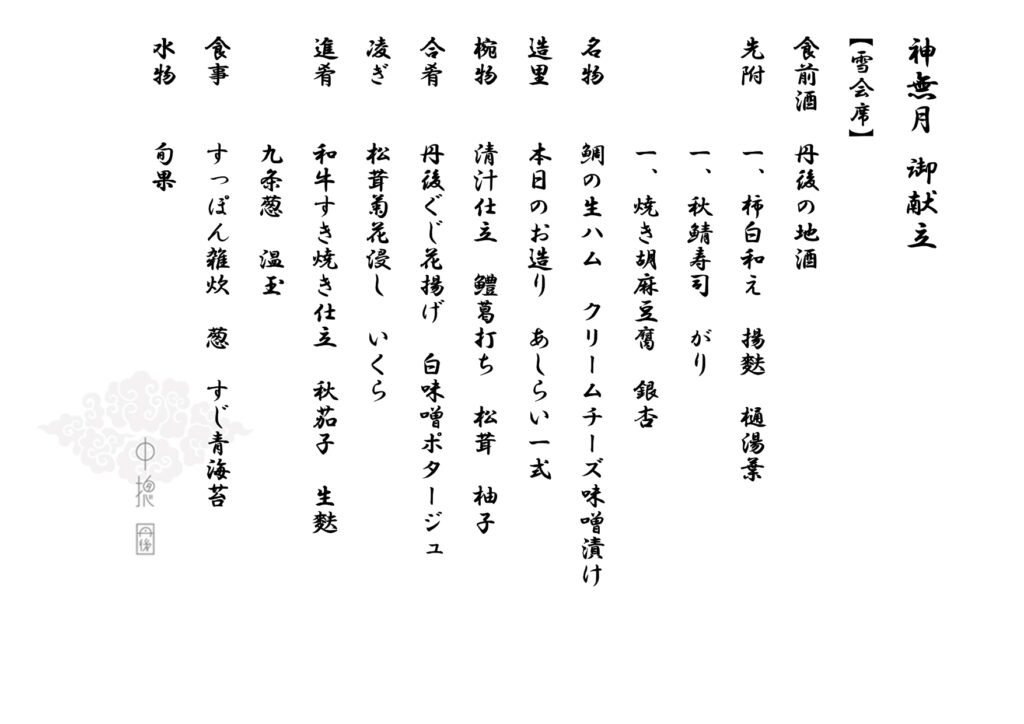 神無月　御献立
【雪会席】
食前酒　丹後の地酒
先附　一、柿白和え　揚麩　樋湯葉
一、秋鯖寿司　がり
一、焼き胡麻豆腐　銀杏
名物　鯛の生ハム　クリームチーズ味噌漬け
造里　本日のお造り　あしらい一式
椀物　清汁仕立　鱧葛打ち　松茸　柚子
合肴　丹後ぐじ花揚げ　白味噌ポタージュ
凌ぎ　松茸菊花浸し　いくら
進肴　和牛すき焼き仕立　秋茄子　生麩
九条葱　温玉
食事　すっぽん雑炊　葱　すじ青海苔
水物　旬果
丹後